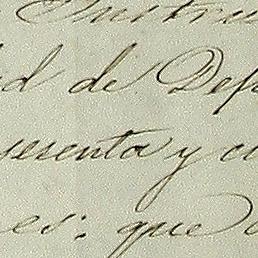 Instru
d de Dep
senta y c
es: que